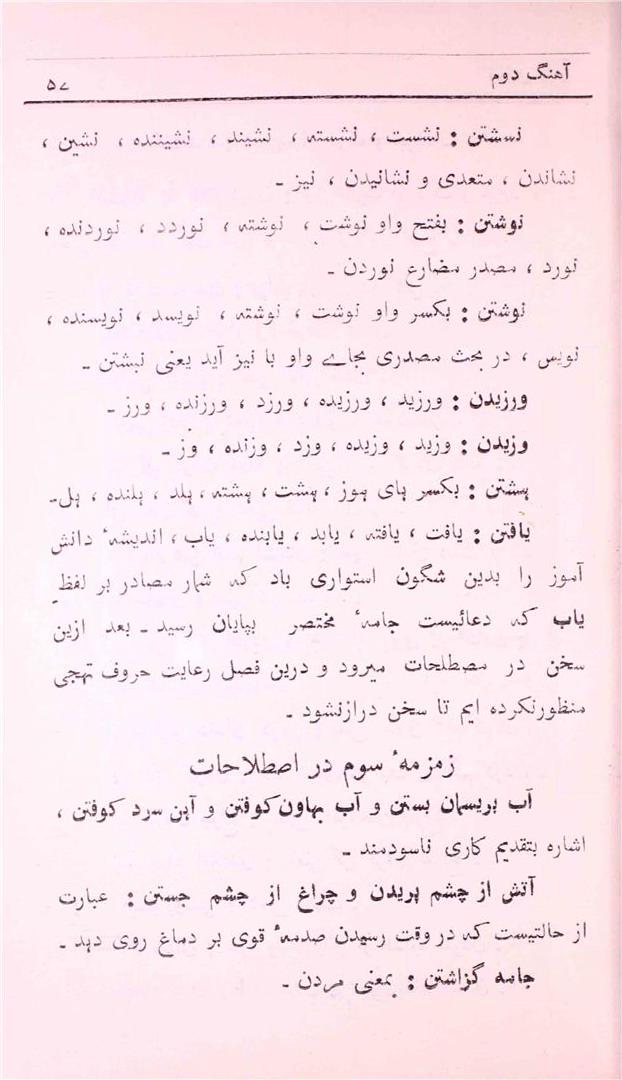 آهنگ دوم ۵۷
نسشتن : نشست ، نشسته ، نشیند ، نشیننده ، نشین ،
نشاندن ، متعدی و نشانیدن ، نیز ۔
نوشتن : بفتح واو نوشت ، نوشته ، نوردد ، نوردنده ،
نورد ، مصدر مضارع نوردن ۔
نوشتن : بکسر واو نوشت ، نوشته ، نویسد ، نویسنده ،
نویس ، در بحث مصدری بجاے واو با نیز آید یعنی نبشتن ۔
ورزیدن : ورزید ، ورزیده ، ورزد ، ورزنده ، ورز ۔
وزیدن : وزید ، وزیده ، وزد ، وزنده ، وز ۔
ہشتن : بکسر ہای ہوز ، ہشت ، ہشته ، ہلد ، ہلنده ، ہل۔
یافتن : یافت ، یافته ، یابد ، یابنده ، یاب ، اندیشهٔ دانش
آموز را بدین شگون استواری باد که شمار مصادر بر لفظ
یاب که دعائیست جامهٔ مختصر بپایان رسید ۔ بعد ازین
سخن در مصطلحات میرود و درین فصل رعایت حروف تہجی
منظورنکرده ایم تا سخن درازنشود ۔
زمزمهٔ سوم در اصطلاحات
آب بریسمان بستن و آب بہاون کوفتن و آہن سرد کوفتن ،
اشاره بتقدیم کاری ناسودمند ۔
آتش از چشم پریدن و چراغ از چشم جستن : عبارت
از حالتیست که در وقت رسیدن صدمهٔ قوی بر دماغ روی دہد ۔
جامه گزاشتن : بمعنی مردن ۔